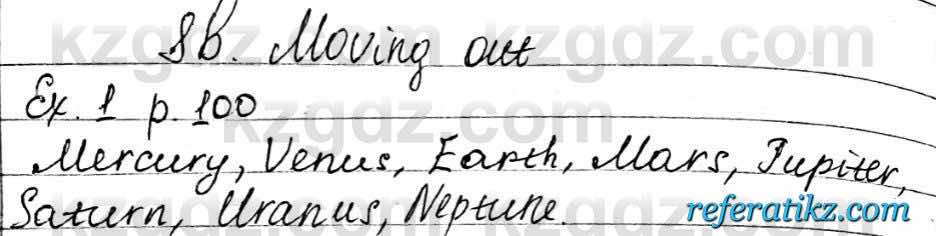 8b. Moving out
Ex. 1 p. 100
Mercury, Venus, Earth, Mars, Jupiter,
Saturn, Uranus, Neptune.
kzgdz.com kzgdz.com
kzgdz.com
referatikz.com